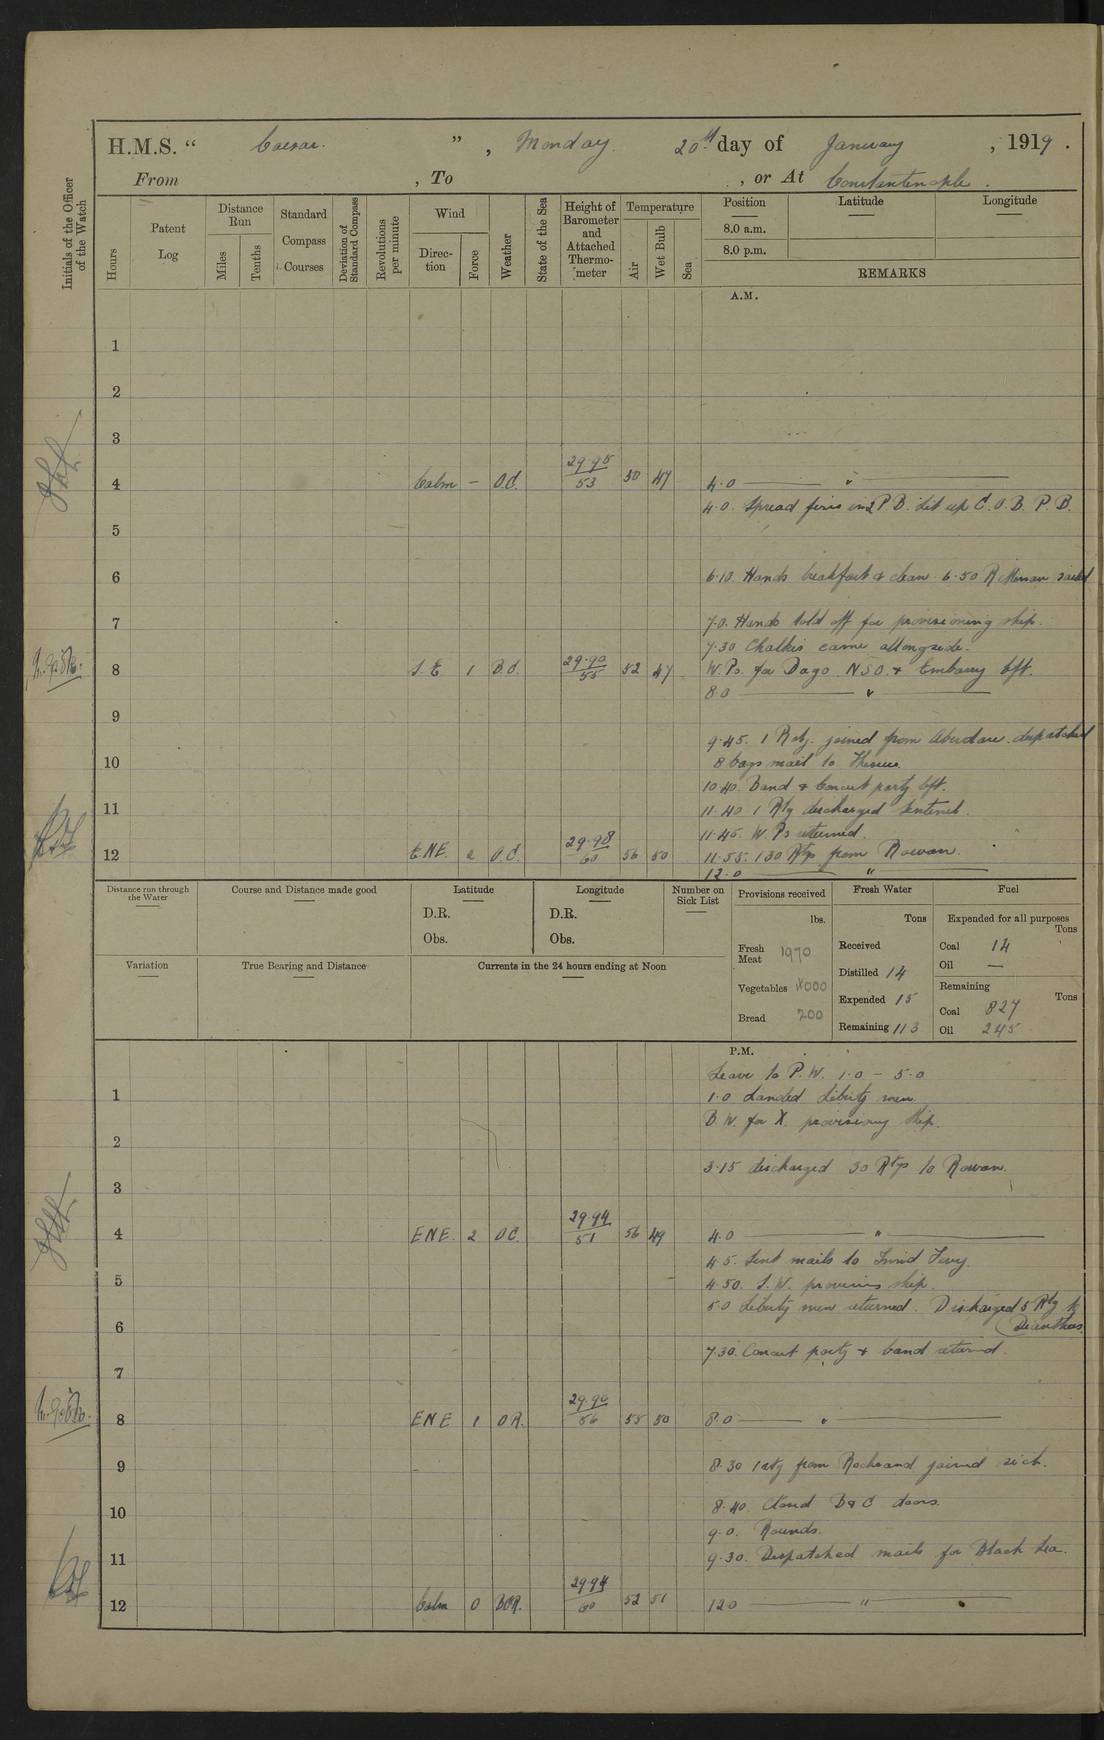 H.M.S. " Caesar. ", Monday 20th day of January, 1919.
From , To , or At Constantinople.
Initials of the Officer of the Watch
Hours
Patent Log
Distance Run
Miles
Tenths
Standard Compass Courses
Deviation of Standard Compass
Revolutions per minute
Wind
Direction
Force
Weather
State of the Sea
Height of Barometer and Attached Thermometer
Temperature
Air
Wet Bulb
Sea
Position
Latitude
Longitude
8.0 a.m.
8.0 p.m.
REMARKS
A.M.
1
2
3
4 Calm – O.C. 29.95 53 50 47 4.0 ——— " ———
4.0. Spread fires in 2 P.B. Let up C.O.B. P.B.
5
6 6.10. Hands breakfast & clean 6.50 sailed
7 7.0. Hands told off for provisioning ship.
7.30 Chalkis came alongside.
8 S.E 1 B.C. 29.90 55 52 47 W.Ps. for Dago N.S.O. & Embassy left.
8.0 ——— " ———
9
9.45. 1 Rtg. joined from Aberdare. despatched
10 8 bags mail to Theseus
10.40. Band & Concert party left.
11 11.40 1 Rtg discharged Sentinel.
11.45. W.Ps returned.
12 E.NE. 2 O.C. 29.98 60 56 50 11.55. 130 Rtgs from Rowan.
12.0 ——— " ———
Distance run through the Water
Course and Distance made good
Latitude
D.R.
Obs.
Longitude
D.R.
Obs.
Number on Sick List
Provisions received
lbs.
Fresh Meat 1970
Vegetables 1000
Bread 200
Fresh Water
Tons
Received
Distilled 14
Expended 15
Remaining 113
Fuel
Expended for all purposes
Tons
Coal 14
Oil —
Remaining
Tons
Coal 827
Oil 245
Variation
True Bearing and Distance
Currents in the 24 hours ending at Noon
P.M.
Leave to P.W. 1.0 – 5.0
1 1.0 Landed Liberty men
B.W. for X. provisioning ship.
2
3.15 discharged 30 Rtgs to Rowan.
3
4 ENE. 2 OC. 29.94 51 56 49 4.0 ——— " ———
4.5. Sent mails to
5 4.50. S.W. provision ship.
5.0 Liberty men returned. Discharged 5 Rtg to
6 Dianthus
7.30. Concert party & band returned.
7
8 ENE 1 OR. 29.90 56 55 50 8.0 ——— " ———
9 8.30 1 rtg from joined sick.
8.40. Closed B & C doors.
10 9.0. Rounds.
11 9.30. Despatched mails for Black Sea.
12 Calm 0 BCR. 29.94 60 52 51 12.0 ——— " ———